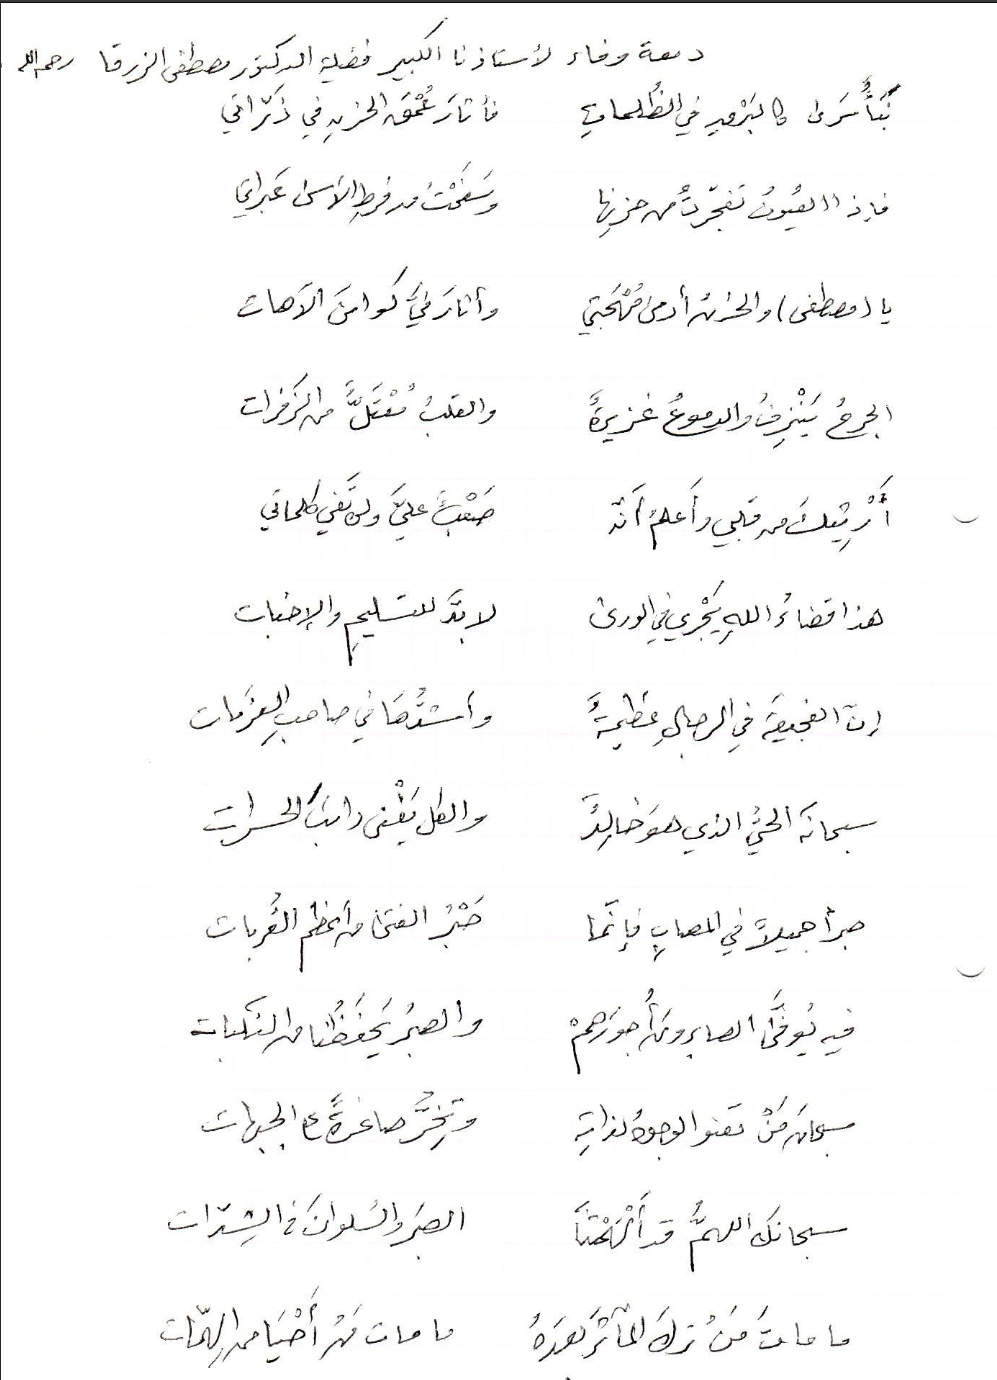 دمعة وفاء لأستاذنا الكبير فضيلة الدكتور مصطفى الزرقا رحمه الله
نَبَأٌ سَرَى كالبَرْقِ في الظُلماتِ فأثارَ عُمْقَ الحزنِ في ذَرّاتي
فإذا العيُونُ تَفَجّرتْ من حزنِها وسَفَحْتُ من فرطِ الأسى عَبَراتي
يا (مصطفى) والحزنُ أدمى مُهْجَتي وأثارَ فيَّ كوامنَ الآهات
الجرحُ يَنْزِفُ والدموعُ غزيرةٌ والقلبُ مُعْتَلٌّ من الزَفَرات
أَرْثيكَ من قلبي وأَعلمُ أنّه صَعْبٌ عليَّ ولا تَفي كلماتي
هذا قضاءُ اللهِ يَجْري في الورى لا بدَّ للتسليمِ والإخبات
إنّ الفجيعةَ في الرجالِ عظيمةٌ وأشدُّهَا في صاحبِ العزَمات
سبحانَه الحيُّ الذي هوَ خالِدٌ والكل يَفْنى دائبَ الحسرات
صبراً جميلاً في المصابِ فإنّما صَبْرُ الفتى من أعظم القُربات
فيه يُوَفَّى الصابرونَ أُجورَهمْ والصبرُ يَحفَظُنا من النَكبات
سبحانَ مَنْ تعنو الوجوهُ لذاتِه وتَخِرُّ صاغرةً له الجبهات
سبحانكَ اللهمَّ قد أَلْهَمْتَنا الصبرَ والسُلوانَ في الشِدّات
ما ماتَ مَنْ تركَ المآثرَ بعدَهُ ما مات مَنْ أَحْيَا من الهمّات